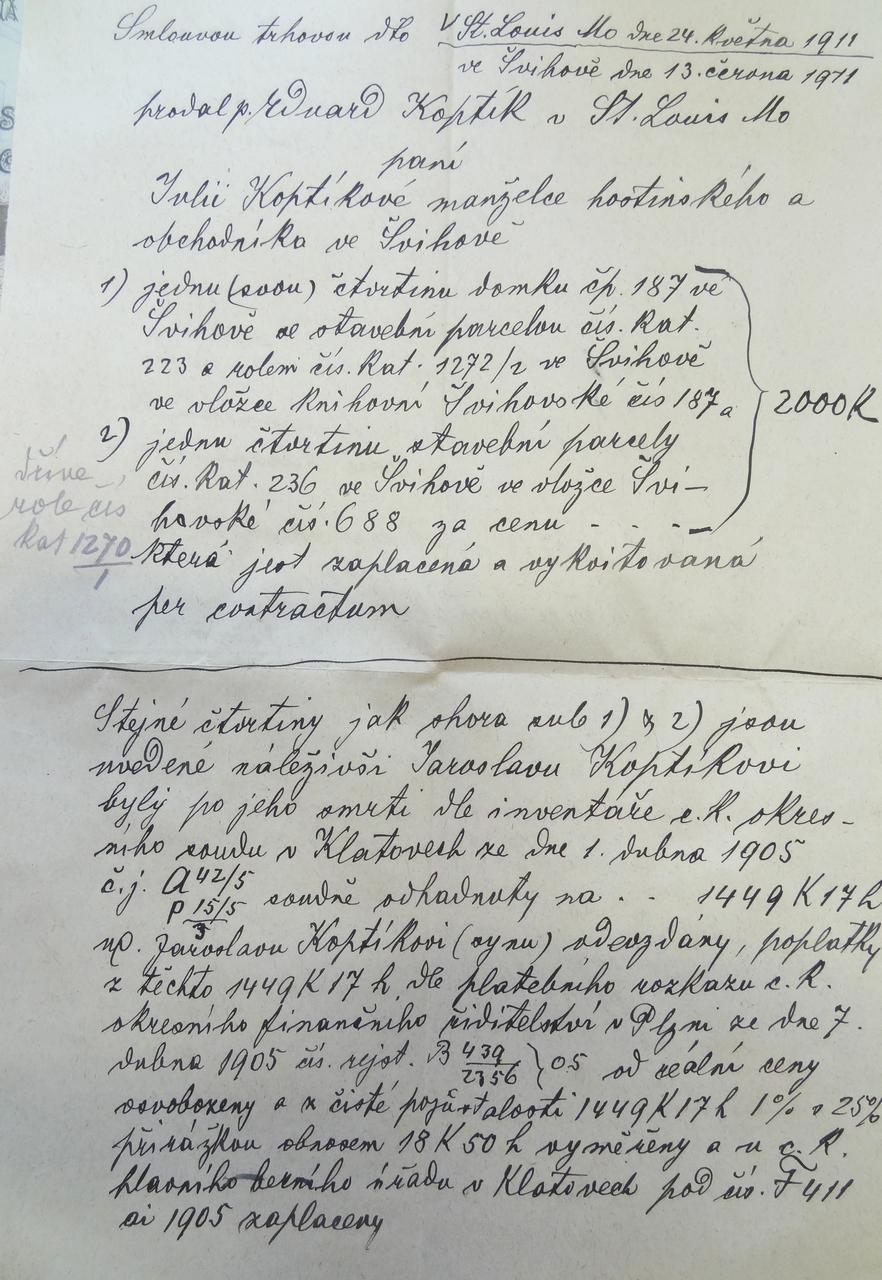 Smlouvou trhovou dto V St. Louis Mo dne 24. května 1911
ve Švihově dne 13. června 1911
prodal p. Eduard Koptík v St. Louis Mo
paní
Julii Koptíkové manželce hostinského a
obchodníka ve Švihově
1) jednu (svou) čtvrtinu domku čp. 187 ve
Švihově se stavební parcelou čís. kat.
223 a rolemi čís. kat. 1272/2 ve Švihově
ve vložce knihovní Švihovské čís 187 a
2) jednu čtvrtinu stavební parcely
čís. kat. 236 ve Švihově ve vložce Švi-
hovské čís. 688 za cenu - - - -
2000 K
dříve
role čís
kat 1270/1
která jest zaplacená a vykvitovaná
per contractum
Stejné čtvrtiny jak shora sub 1) & 2) jsou
uvedené náleživší Jaroslavu Koptíkovi
byly po jeho smrti dle inventáře c. k. okres-
ního soudu v Klatovech ze dne 1. dubna 1905
č. j. A 42/5
P 15/5
3
soudně odhadnuty na . . 1449 K 17 h
Jaroslavu Koptíkovi (synu) odevzdány, poplatky
z těchto 1449 K 17 h dle platebního rozkazu c. k.
okresního finančního ředitelství v Plzni ze dne 7.
dubna 1905 čís. rejst. B 439/2356 } 05 od reální ceny
osvobozeny a z čisté pozůstalosti 1449 K 17 h 1% s 25%
přirážkou obnosem 18 K 50 h vyměřeny a u c. k.
hlavního berního úřadu v Klatovech pod čís. F 411
ai 1905 zaplaceny